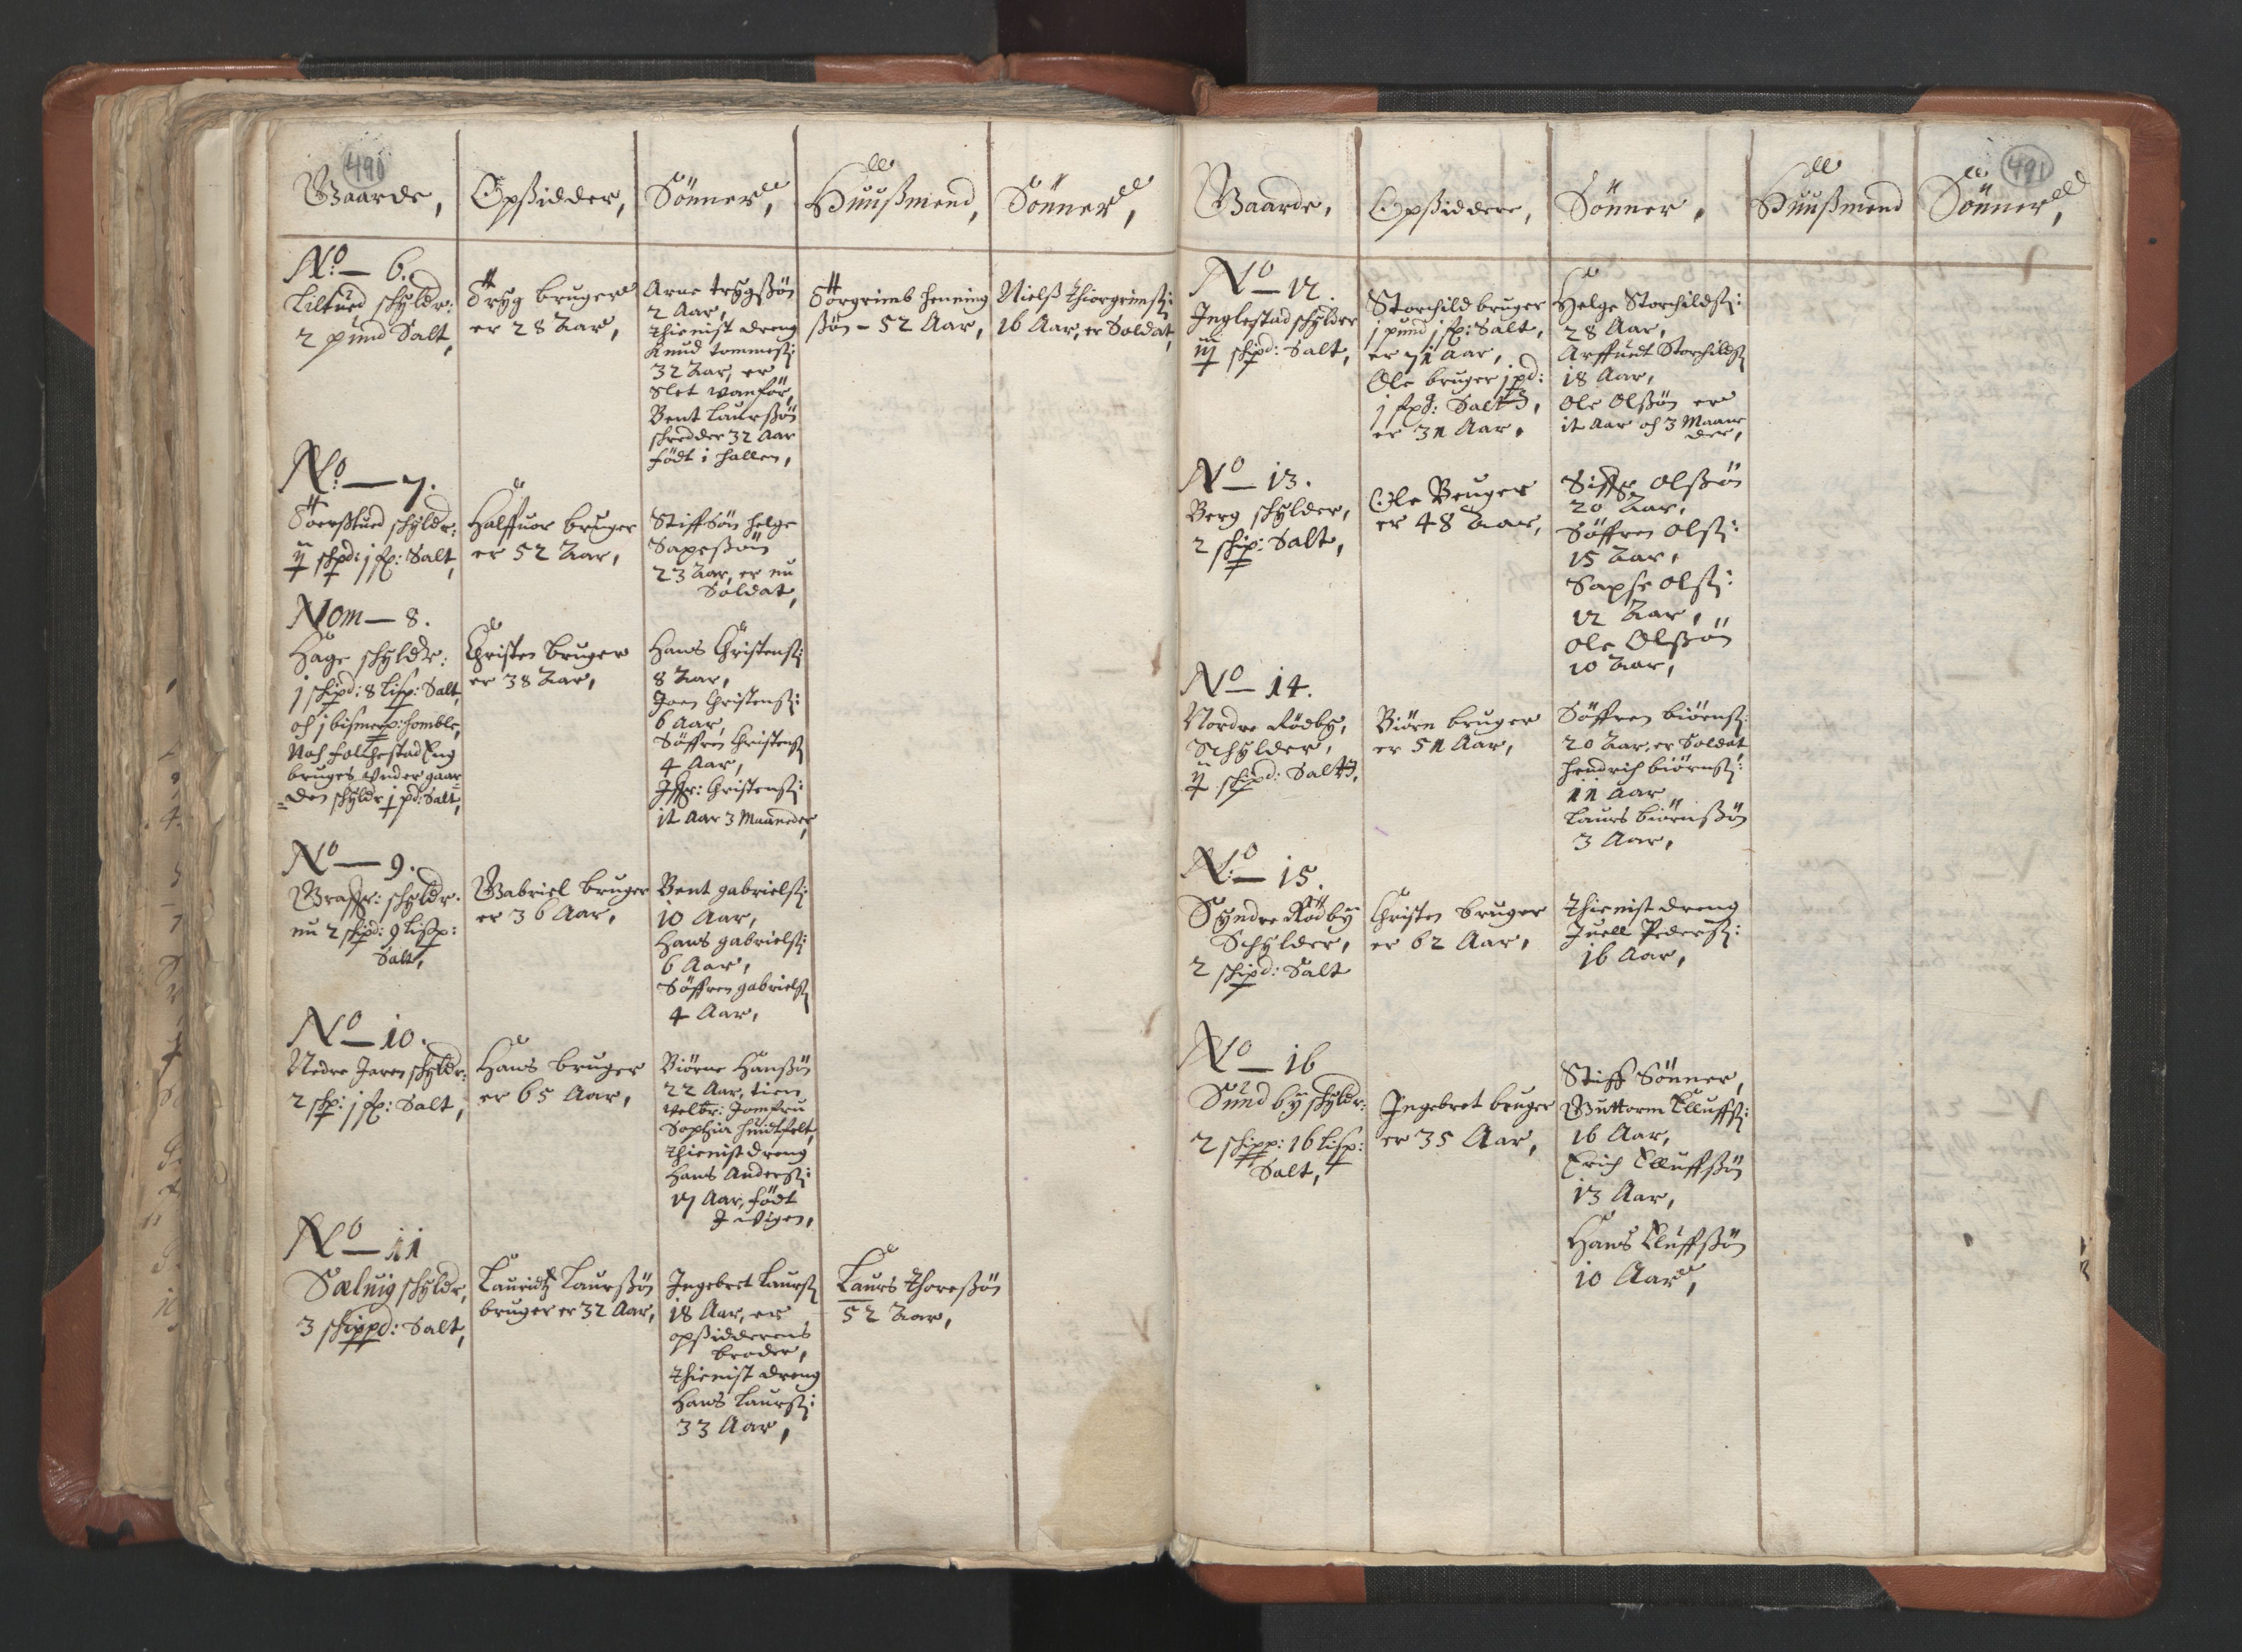 490
Gaarde,
Opsidder,
Sönner,
Huußmend,
Sönner,
No. 6.
Liltued schyldr:
2 pund Salt,
Tryg bruger
er 28 Aar,
Arne trygßön
2 Aar,
thienist dreng
Knud tommesß:
32 Aar, er
Slet wanför,
Bent Laurßön
schredder 32 Aar
födt i hallen,
Törgrimb henning
ßön - 52 Aar,
Nielß thiorgrimsß:
16 Aar, er Soldat,
No. 7.
schyldr:
ij schpd: j Salt,
Halffuor bruger
er 52 Aar,
Stiffsön helge
Sapeßön
23 Aar, er nu
Soldat,
Nom 8.
Hage schyldr:
j schpd: 8 Lisp: Salt,
och j bismerp: homble,
Noch Folchestad Eng
bruges under gaar
den schyldr j pd: Salt,
Christen bruger
er 38 Aar,
Hans Christensß:
8 Aar,
Joen Christensß:
6 Aar,
Söffren Christensß
4 Aar,
Christensß:
it Aar 3 Maaneder,
No 9.
schyldr.
nu 2 schpd: 9 Lisp:
Salt,
Gabriel bruger
er 36 Aar,
Bent gabrielsß:
10 Aar,
Hans gabrielsß:
6 Aar,
Söffren gabrielsß
4 Aar,
No 10.
Nedre Jaren schyldr:
2 schp: j Salt,
Hans bruger
er 65 Aar,
Biörne Hanßön
22 Aar, tien
velbr: Jomfru
Sophia huidtfelt,
thienist dreng
Hans Andersß:
17 Aar, födt
J wigen,
No 11
Sælnig schyldr,
3 schippd: Salt,
Lauridtz Laurßön
bruger er 32 Aar,
Ingebret Laursß
18 Aar, er
opsidderens
broder,
thienist dreng
Hans Laursß:
33 Aar,
Laurs thoreßön
52 Aar,
491
Gaarde,
Opsiddere,
Sönner,
Huußmend
Sönner,
No 12.
Inglestad schylder
iij schpd: Salt,
Storchild bruger
j pund j Salt,
er 71 Aar,
Ole bruger j pd:
j Salt,
er 31 Aar,
Helge Storchildsß:
28 Aar,
Arffuedt Storchildsß
18 Aar,
Ole Olßön er
it Aar och 3 Maane
der,
No 13.
Berg schylder,
2 schip: Salt,
Ole Bruger
er 48 Aar,
Olßön
20 Aar,
Söffren Olsß:
15 Aar,
Olsß:
12 Aar,
Ole Olßön
10 Aar,
No 14.
Nordre Rödby,
Schylder,
ij schpd: Salt,
Biörn bruger
er 51 Aar,
Söffren biörnsß:
20 Aar, er Soldat,
hendrich biörnsß:
11 Aar
Laurs biörnßön
3 Aar,
No 15.
Syndre Rödby
Schylder,
2 schipd: Salt
Christen bruger
er 62 Aar,
thienist dreng
Juell Pedersß:
16 Aar,
No 16
Sundby schyldr:
2 schipp: 16 lisp:
Salt,
Ingebret bruger
er 35 Aar,
Stiff Sönner,
Guttorm Elluffsß:
16 Aar,
Erich Elluffßön
13 Aar,
Hans Elluffßön
10 Aar,